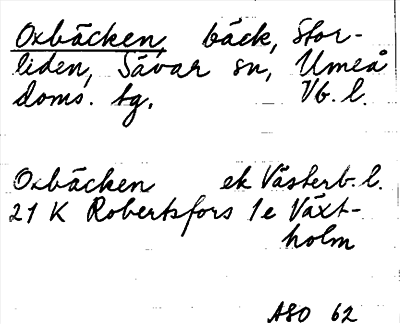 Oxbäcken, bäck, Stor-
liden, Sävar sn, Umeå
doms. tg. Vb. l.
Oxbäcken ek Västerb. l.
21 K Robertsfors 1e Växt-
holm
ASO 62